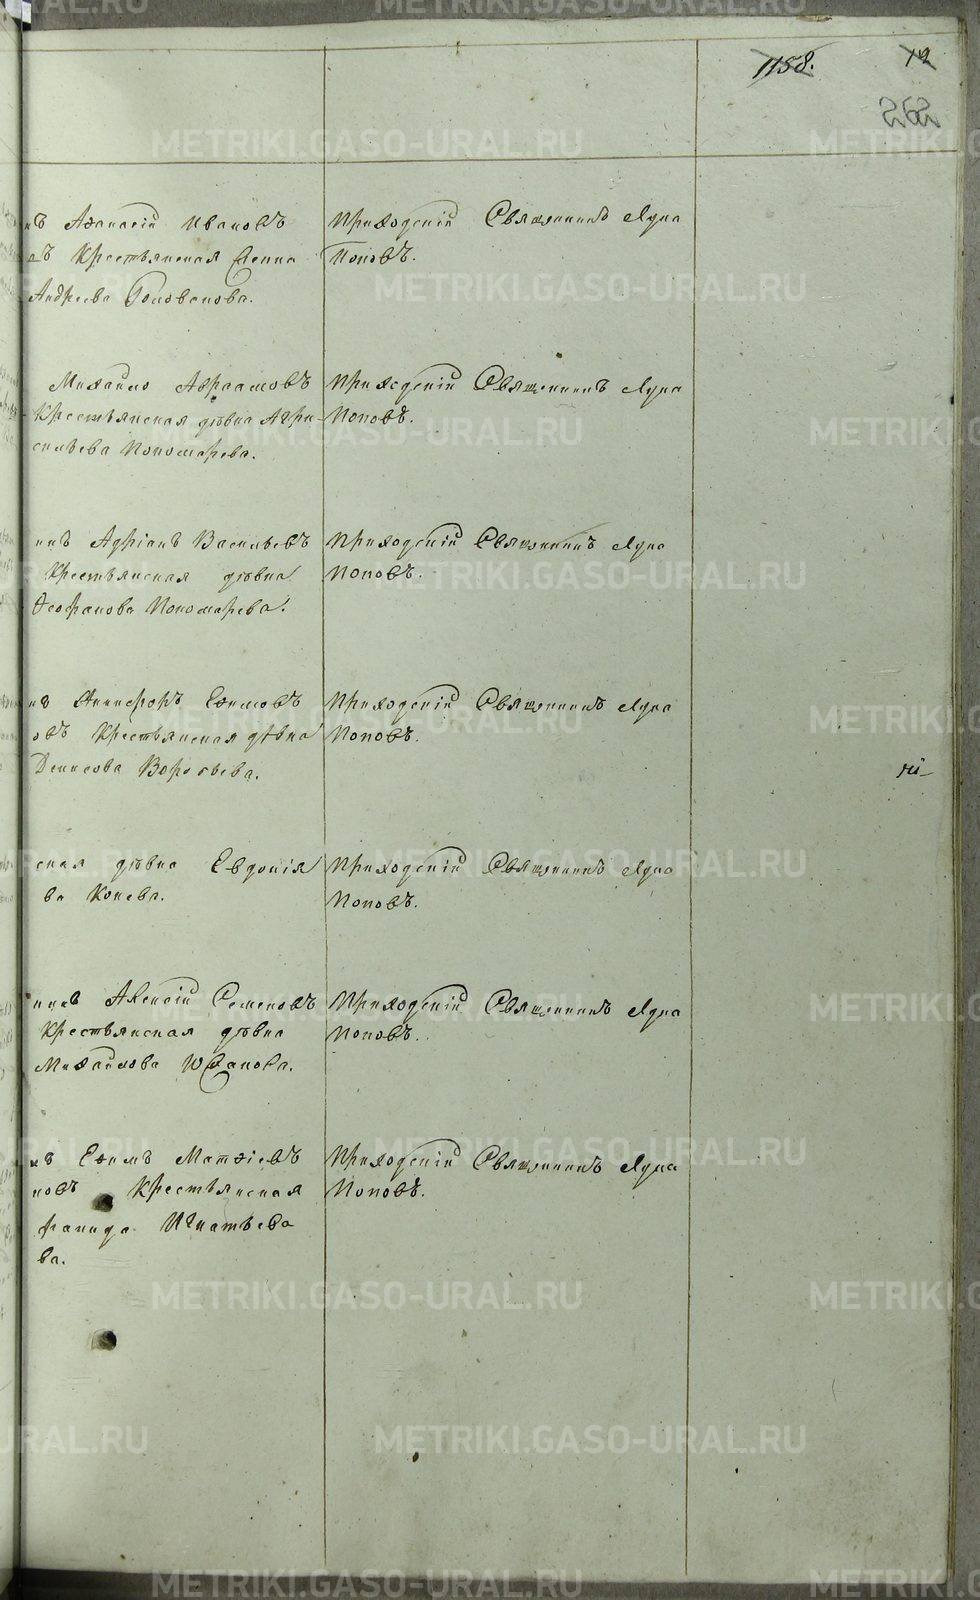 1158.
12
262
нъ Аѳанасій Ивановъ
въ Крестьянская
Андреева Голованова.
Приходскій Священникъ Лука
Поповъ.
Михайло Авраамовъ
Крестьянская дѣвка Агри-
Пономарева.
Приходскій Священникъ Лука
Поповъ.
никъ Адріанъ Васильевъ
Крестьянская дѣвка
Ѳеофанова Пономарева.
Приходскій Священникъ Лука
Поповъ.
нъ Никифоръ Еѳимовъ
овъ Крестьянская дѣвка
Денисова Воробьева.
Приходскій Священникъ Лука
Поповъ.
ская дѣвка Евдокія
ва Конева.
Приходскій Священникъ Лука
Поповъ.
Алексій Семеновъ
Крестьянская дѣвка
Михайлова
Приходскій Священникъ Лука
Поповъ.
нъ Еѳимъ Матѳіевъ
новъ Крестьянская
Игнатьева
ва.
Приходскій Священникъ Лука
Поповъ.
METRIKI.GASO-URAL.RU